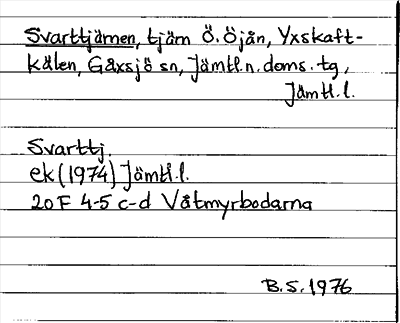 Svarttjärnen, tjärn Ö. Öjån, Yxskaft-
kälen, Gåxsjö sn, Jämtl. n. doms. tg,
Jämtl. l.
Svarttj.
ek (1974) Jämtl. l.
20 F 4-5 c-d Våtmyrbodarna
B. S. 1976